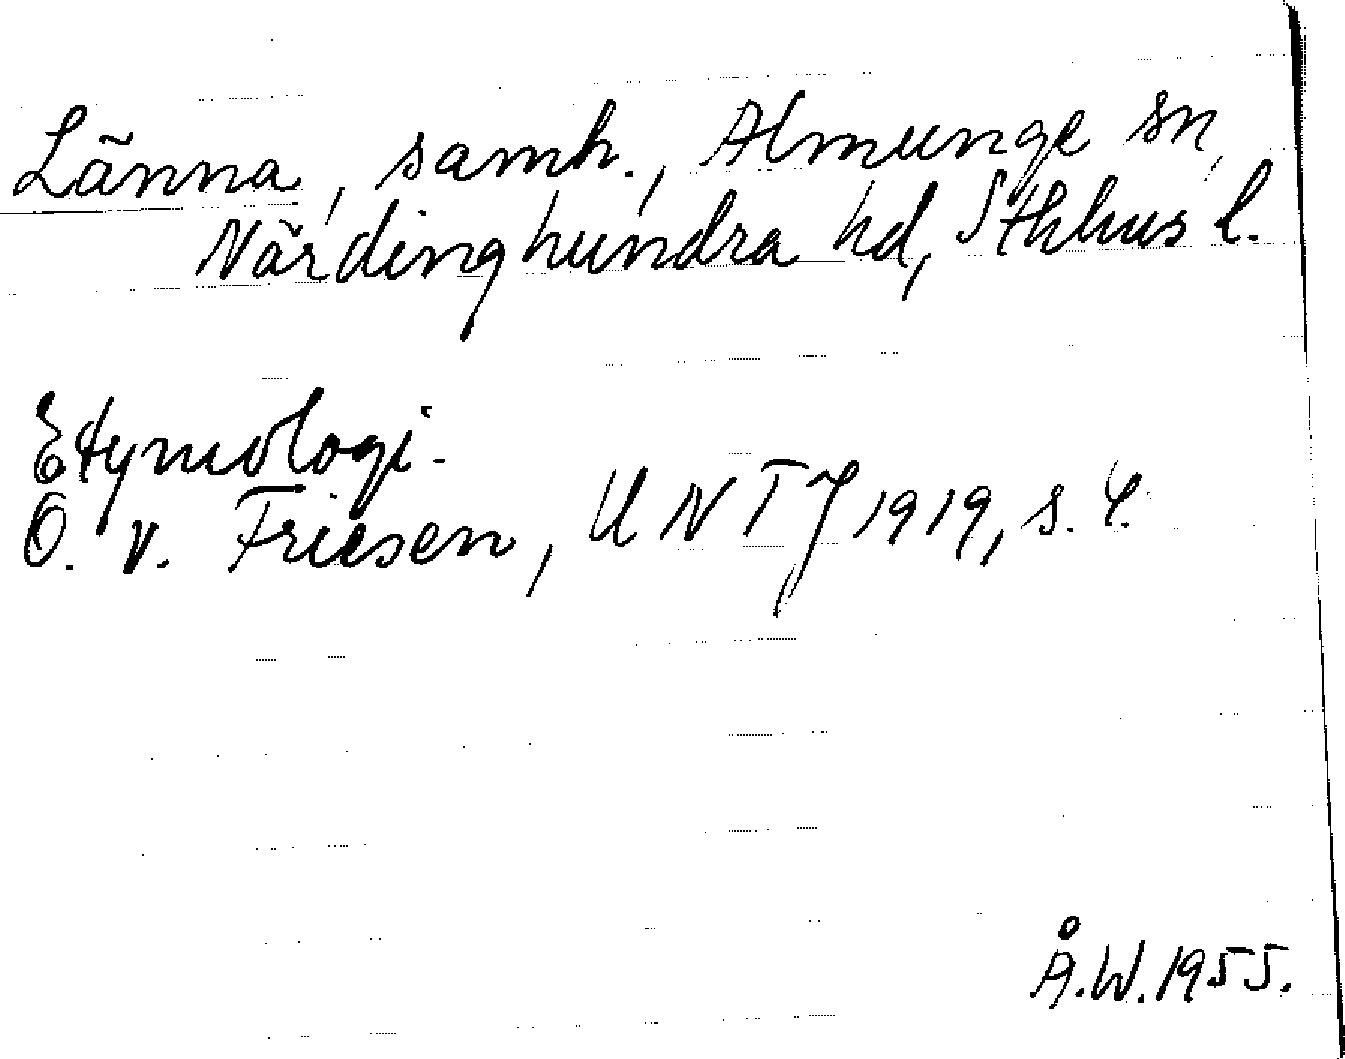 Länna, samh., Almunge sn,
Närdinghundra hd, Sthlms l.
Etymologi.
O. v. Friesen, UNTJ 1919, s. 4.
Å.W. 1955.